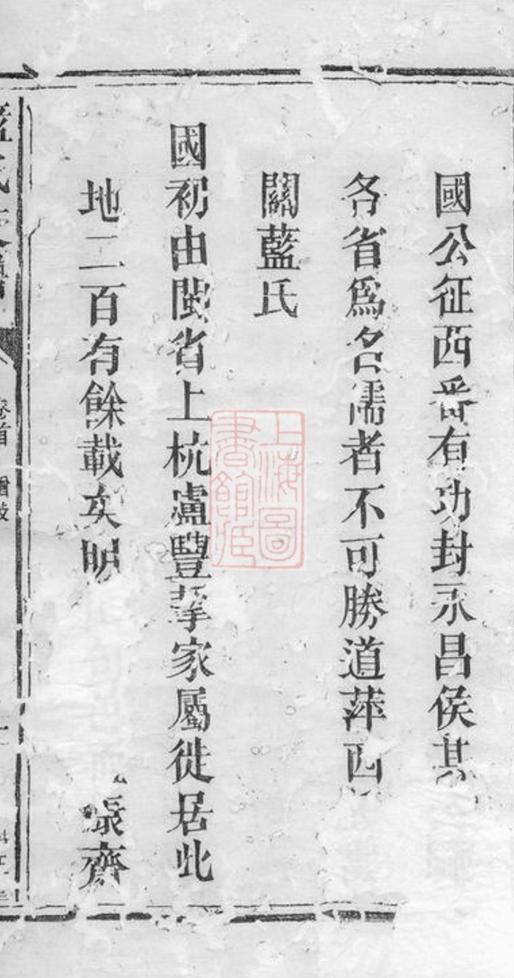 國公征西番有功封永昌侯其
各省爲名儒者不可勝道萍西
關藍氏
國初由閩省上杭瀘豐挈家屬徙居此
地二百有餘載矣
齊
卷首
上海圖書館藏